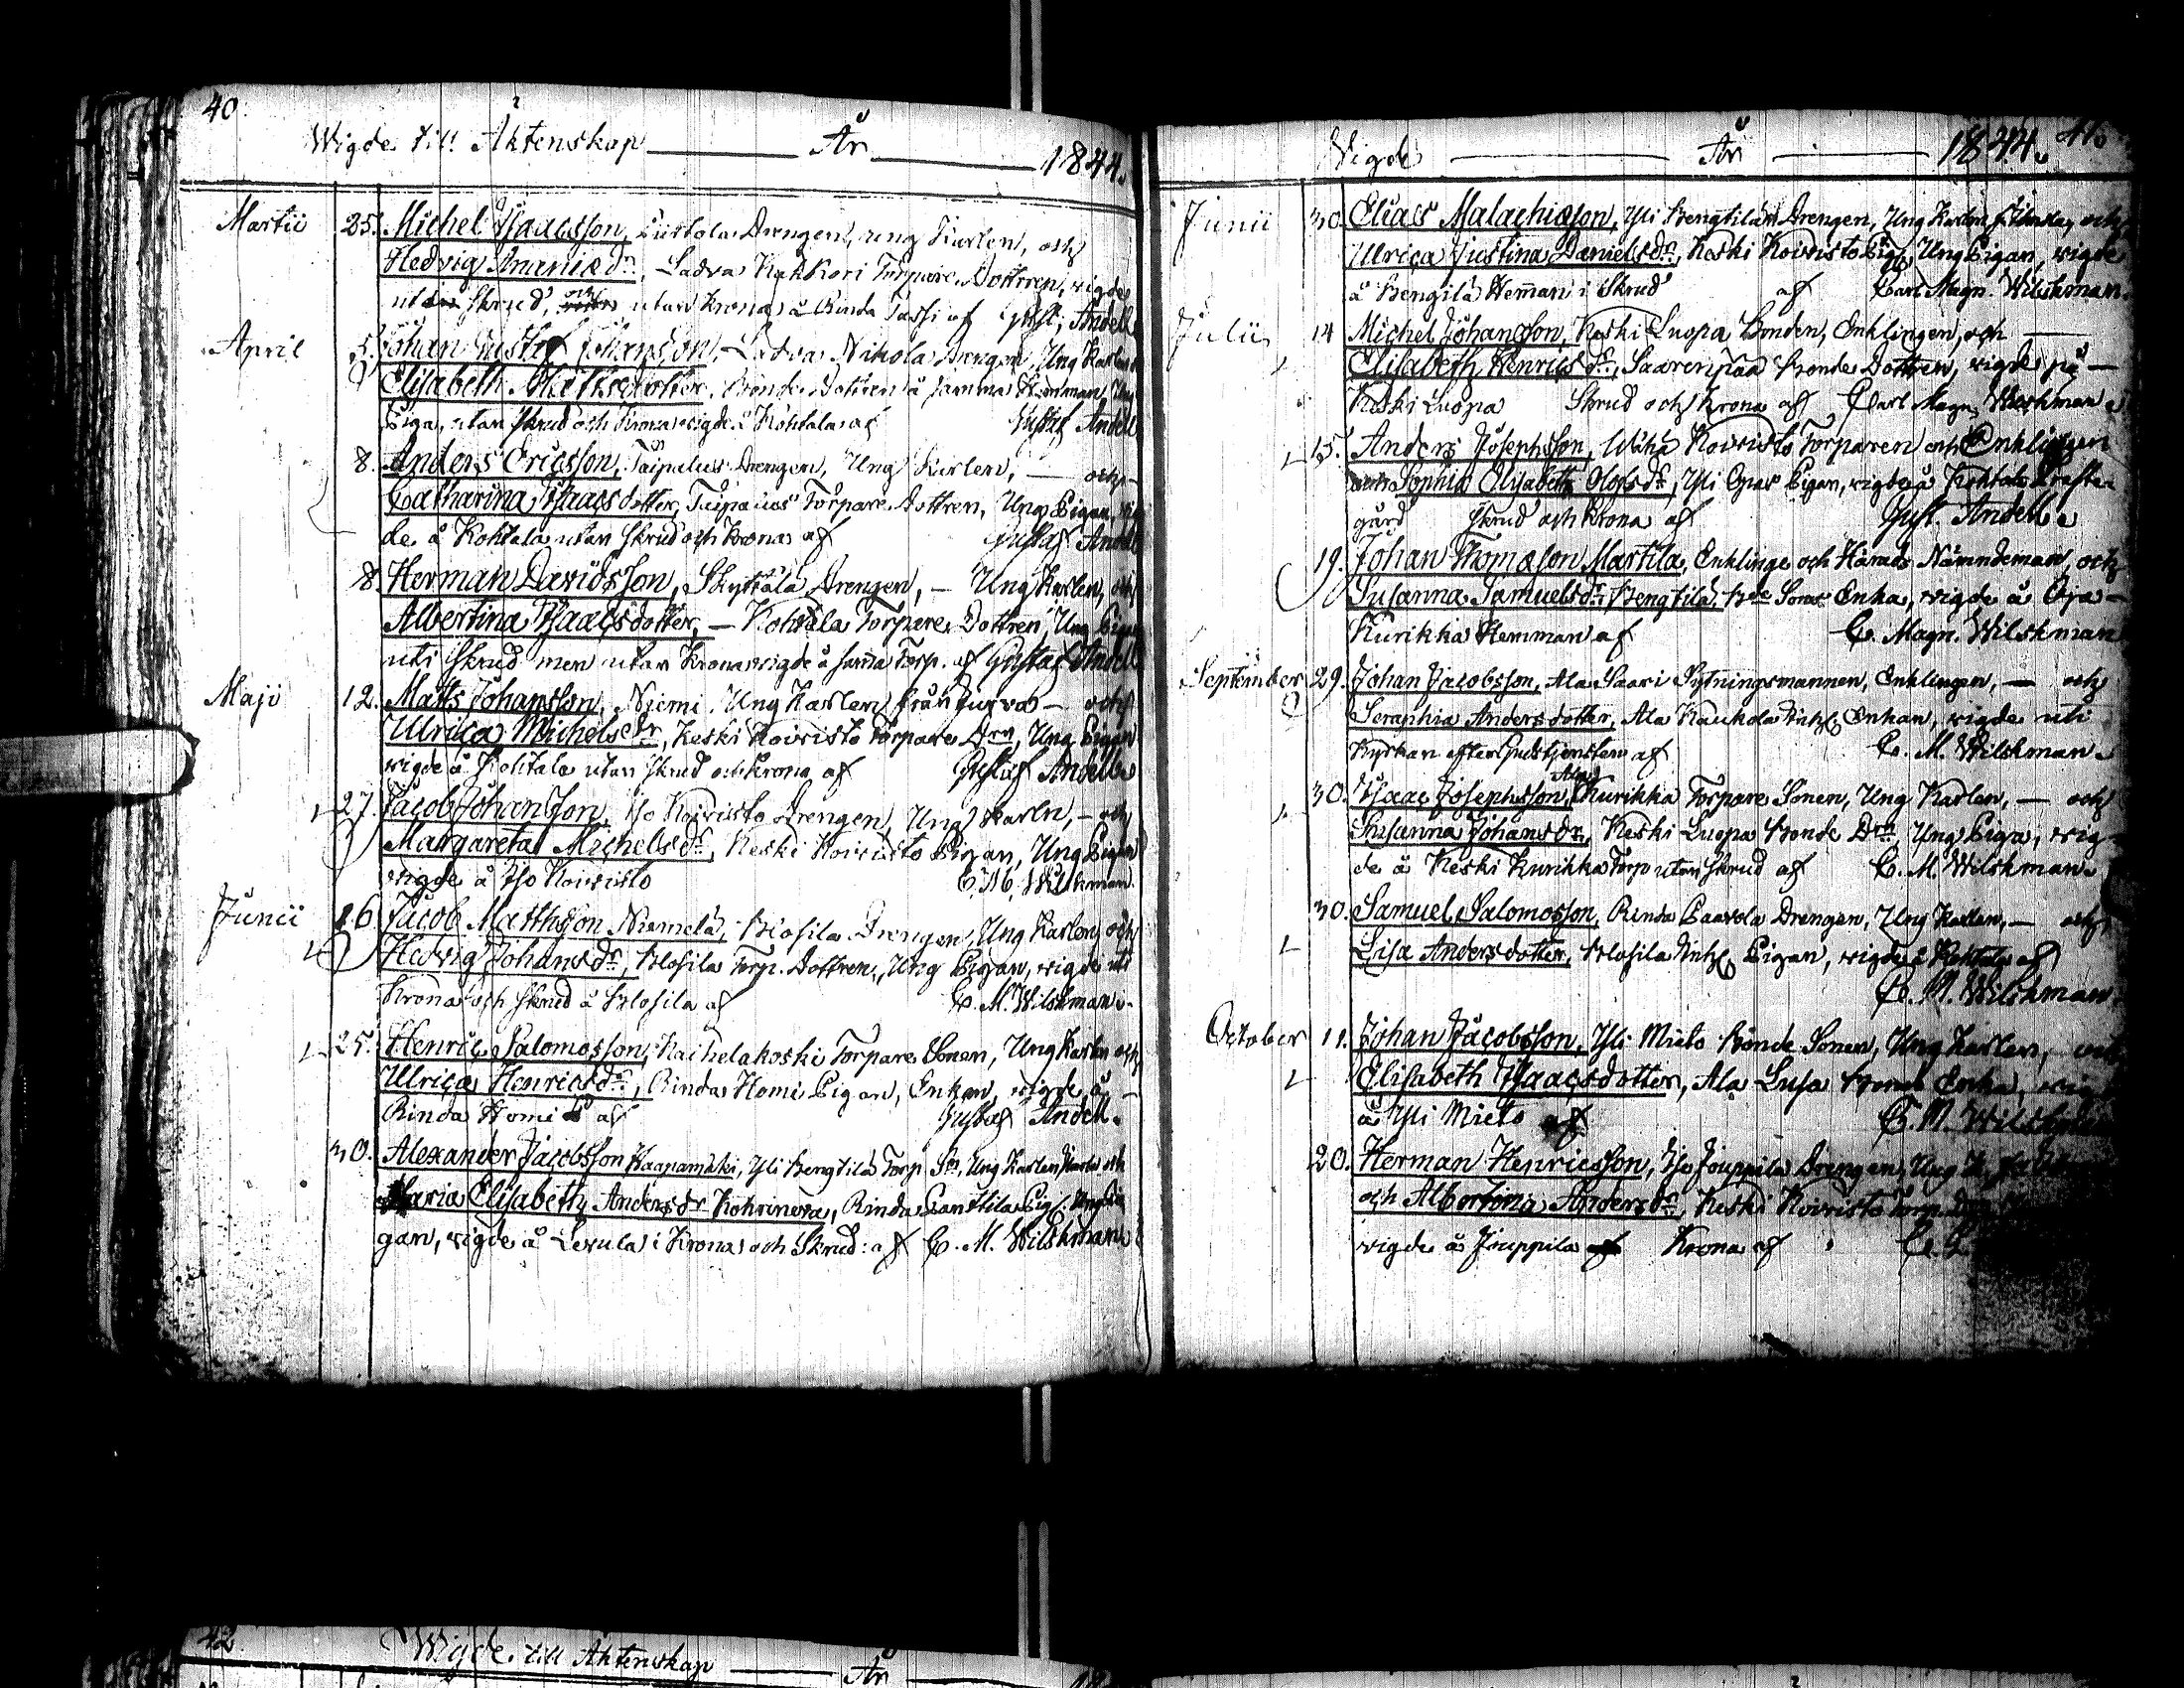 40
Wigde till Äktenskap År 1844.
Martii 25. Michel Isaacsson, Drengen, ung Karlen, och
Hedvig Ananiædr, Ladva Kakkori Torpare Dottren, wigde
utan Skrud, och utan Krona å Rinda Passi af Gust. Andell
April 5. Johan Gustaf Johansson, Ladva Nikola Drengen, Ung Karlen
Elisabeth dotter, Bonde Dottren å samma Hemman, Ung
Piga, utan Skrud och Krona wigde å Kohtala af Gustaf Andell
8. Anders Ericsson, Taipalus Drengen, Ung Karlen, — och
Catharina Isaacsdotter, Taipalus Torpare Dottren, Ung Pigan, wig
de å Kohtala utan Skrud och Krona af Gustaf Andell
8. Herman Davidsson, Skyttälä Drengen, — Ung Karlen, och
Albertina Isaacsdotter, — Kohtala Torpare Dottren, Ung Pigan
uti Skrud men utan Krona wigde å samma Torp. af Gustaf Andell
Maji 12. Matts Johansson, Niemi, Ung Karlen från Jurva — och
Ulrica Michelsdr, Keski Koivisto Torpare Drn, Ung Pigan
wigde å Kohtala utan Skrud och Krona af Gustaf Andell
27. Jacob Johansson, Iso Koivisto Drengen, Ung Karln, — och
Margareta Michelsdr, Keski Koivisto Pigan, Ung Pigan
wigde å Iso Koivisto C. M. Wilskman.
Junii 16 Jacob Mattsson Niemelä, Klosila Drengen, Ung Karlen, och
Hedvig Johansdr, Klosila Torp. Dottren, Ung Pigan, wigde uti
Krona och Skrud å Klosila af C. M. Wilskman.
25. Henric Salomosson, Raihelakoski Torpare Sonen, Ung Karlen och
Ulrica Henricsdr, Rinda Homi Pigan, Enkan, wigde å
Rinda Homi af Gustaf Andell.
30. Alexander Jacobsson Haapamäki, Yli Bengtilä Torp. Sn, Ung Karlen, och
Maria Elisabeth Andersdr Kohvinera, Rinda Panttila Pig.
gan, wigde å Levula i Krona och Skrud: af C. M. Wilskman
Wigde År 1844. 41.
Junii 30. Elias Malachiason, Yli Bengtilän Drengen, Ung Karlen och
Ulrica Justina Danielsdr, Keski Koivisto Pig, Ung Pigan, wigde
å Bengtilä Hemman i Skrud af Carl Magn. Wilskman.
Julii 14 Michel Johansson, Keski Luopa Bonden, Enklingen, och —
Elisabeth Henricsdr, Saarenpää Bonde Dottren, wigde på —
Keski Luopa Skrud och Krona af Carl Magn. Wilskman.
15. Anders Josephsson, Wähä Koivisto Torparen och Enklingen
Sophia Elisabeth Olofsdr, Yli Pigan, wigde å Kohtala
gård Skrud och Krona af Gust. Andell.
19. Johan Thomason Martila, Enklinge och Härads Nämndeman, och
Susanna Samuelsdr, Bengtilä, Bde Sons Enka, wigde å Oja-
Kurikka Hemman af C. Magn. Wilskman
September 29. Johan Jacobsson, Ala Saari Sytningsmannen, Enklingen, — och
Seraphia Andersdotter, Ala Kaukola Enkan, wigde uti
Kyrkan efter Gudstjensten af C. M. Wilskman.
30. Isaac Josephsson, Ala Kurikka Torpare Sonen, Ung Karlen, — och
Susanna Johansdr, Keski Luopa Bonde Drn, Ung Piga, wig-
de å Keski Kurikka Torp utan Skrud af C. M. Wilskman.
30. Samuel Salomosson, Rinda Paavola Drengen, Ung Karlen, — och
Lisa Andersdotter, Klosila Inh. Pigan, wigde å Kohtala af
C. M. Wilskman.
October 11. Johan Jacobsson, Yli Mieto Bonde Sonen, Ung Karlen, och
Elisabeth Isaacsdotter, Ala Luopa Bonde Enka, wigde
å Yli Mieto af C. M. Wilskman
20. Herman Henricsson, Iso Jouppila Drengen, Ung
och Albertina Andersdr, Keski Koivisto Torp.
wigde å Jouppila Krona af
42
Wigde till Äktenskap År